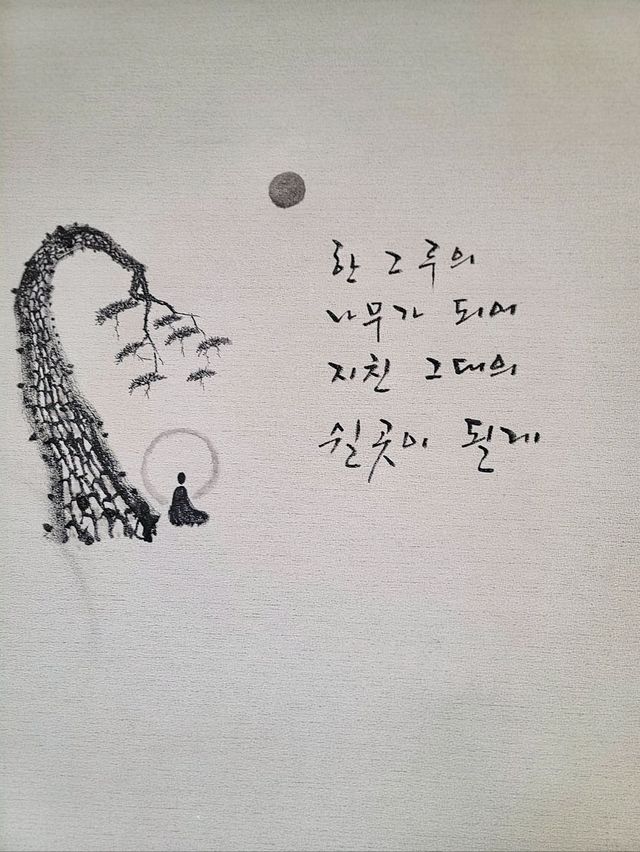 한 그루의
나무가 되어
지친 그대의
쉴곳이 될게